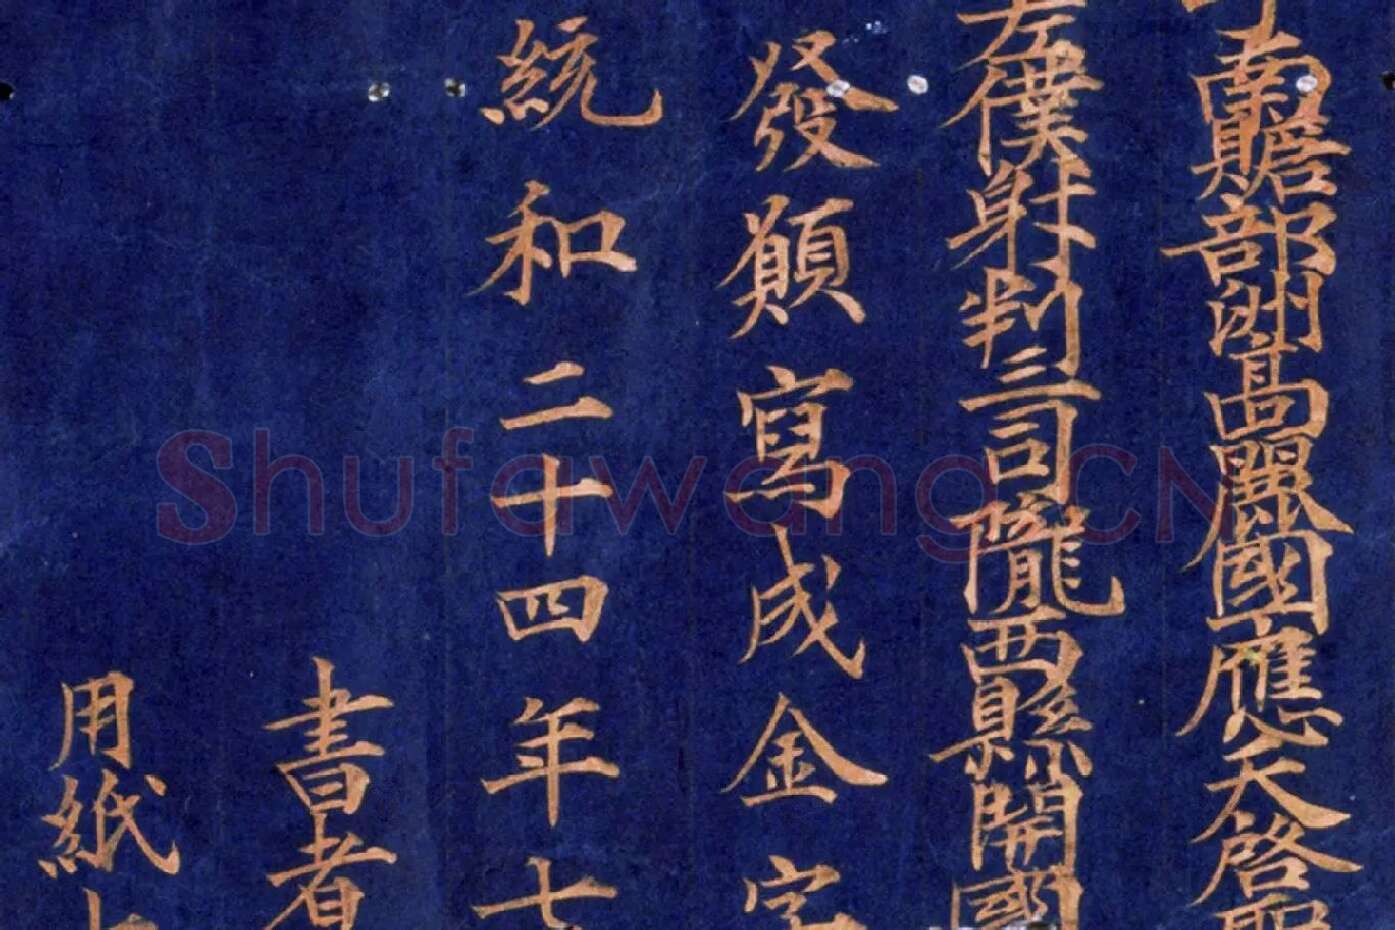 南贍部洲髙麗國應天啓聖
左僕射判三司隴西縣開國
發願寫成金字
統和二十四年七
書者
用紙十
Shufawang.CN